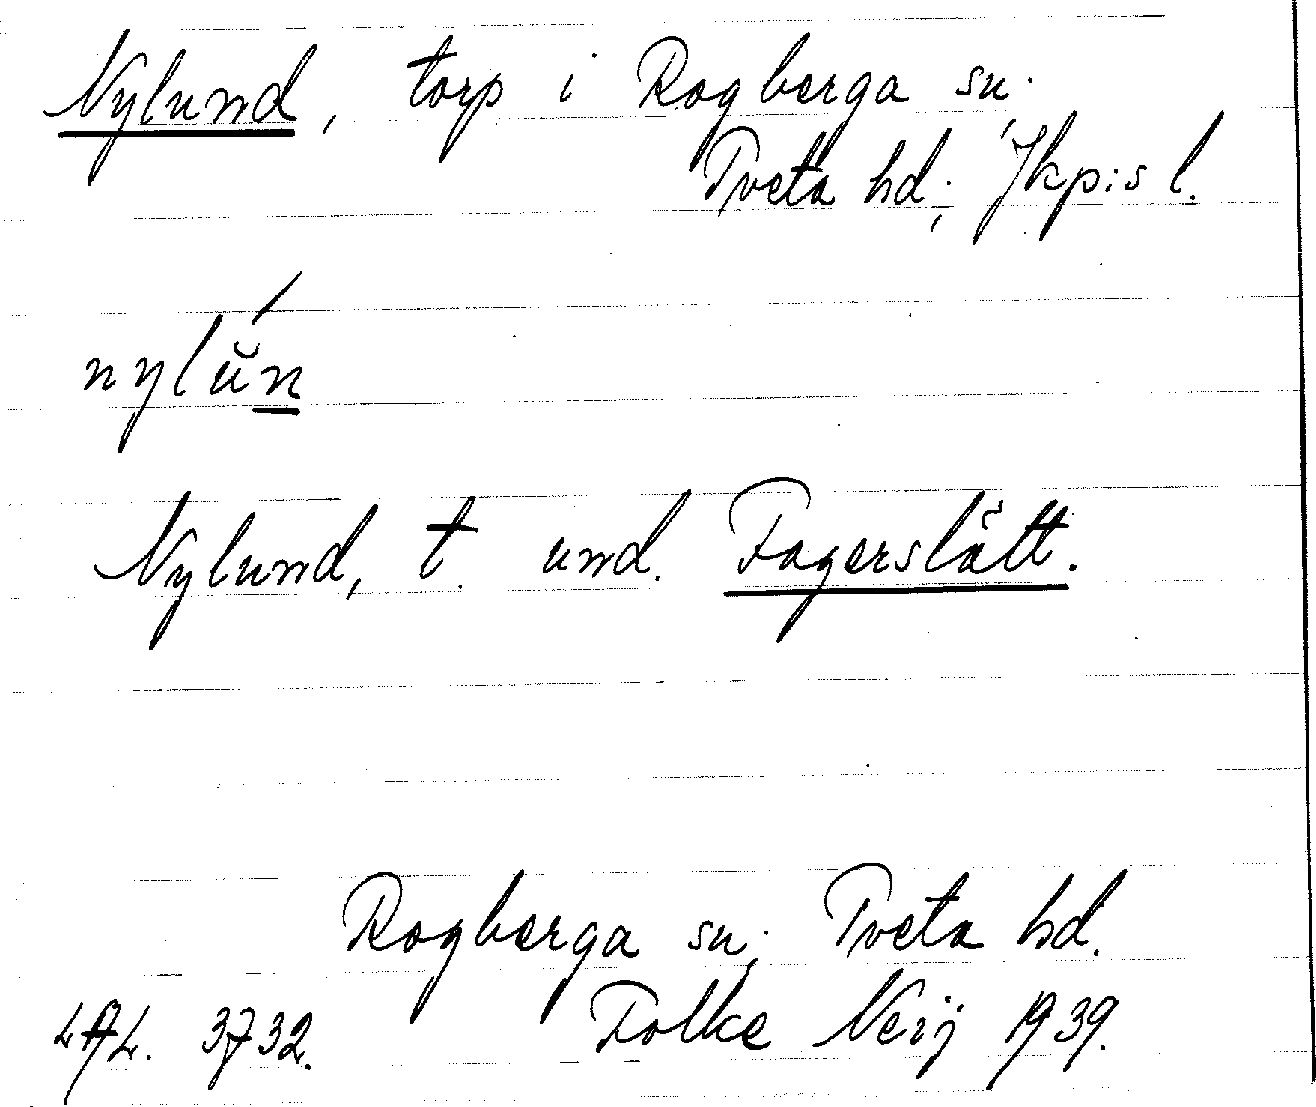 Nylund, torp i Rogberga sn.
Tveta hd; Jkpis l.
nylŭ́n
Nylund, t. und. Fagerslätt.
Rogberga sn; Tveta hd.
LAL. 3732. Folke Neij 1939.